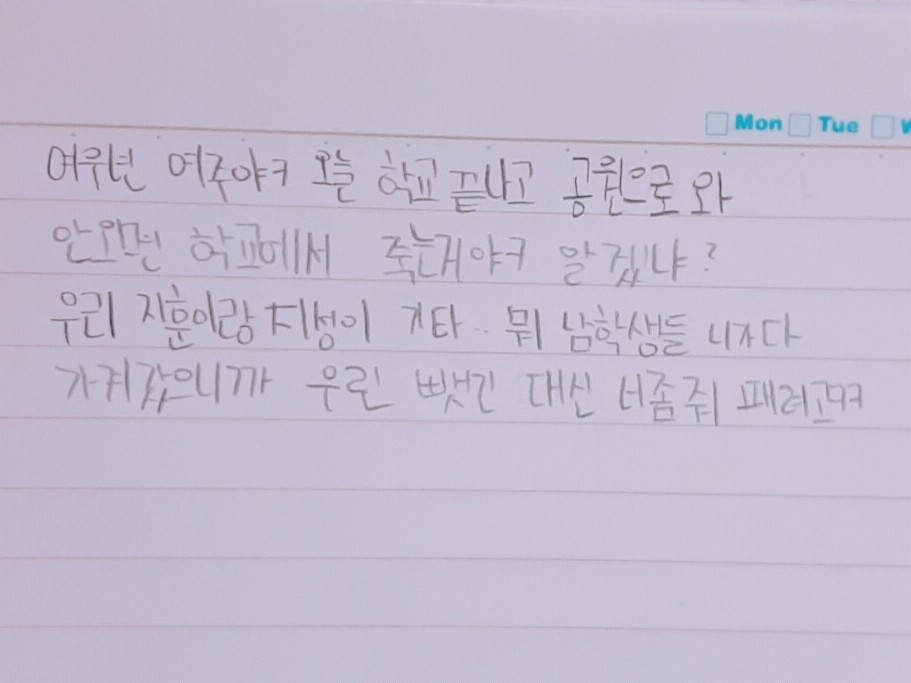 Mon Tue W
여우년 여주야ㅋ 오늘 학교 끝나고 공원으로 와
안오면 학교에서 죽는거야ㅋ 알겠냐?
우리 지훈이랑 지성이 기타.. 뭐 남학생들 니가 다
가져갔으니까 우린 뺏긴 대신 너좀 줘 패려고ㅋㅋ